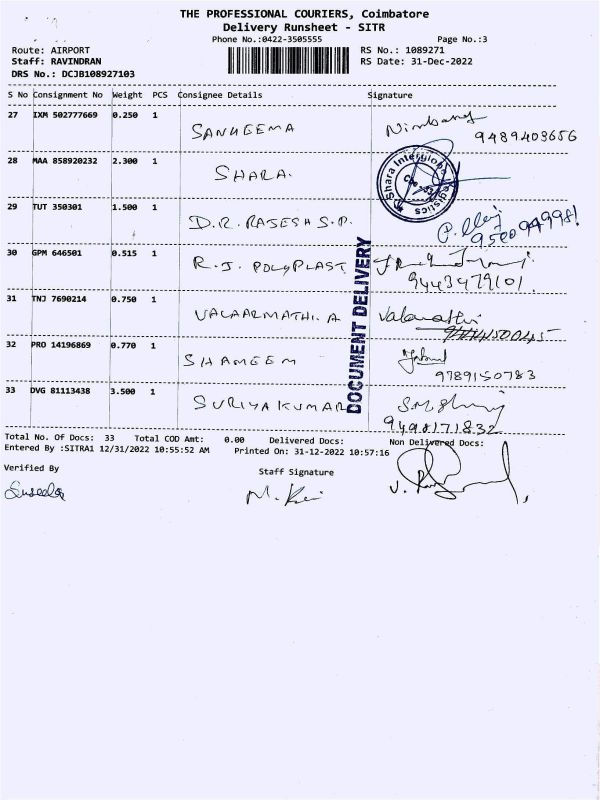 THE PROFESSIONAL COURIERS, Coimbatore
Delivery Runsheet - SITR
Phone No.:0422-3505555 Page No.:3
Route: AIRPORT RS No.: 1089271
Staff: RAVINDRAN RS Date: 31-Dec-2022
DRS No.: DCJB108927103
S No Consignment No Weight PCS Consignee Details Signature
27 IXM 502777669 0.250 1 SANHEEMA 9489403656
28 MAA 858920232 2.300 1 SHARA. Shara Interglobe Logistics
29 TUT 350301 1.500 1 D.R. RAJESH S.P.
30 GPM 646501 0.515 1 R.J. POLYPLAST 9443479101.
31 TNJ 7690214 0.750 1 VALAARMATHI. A Valarmathi
32 PRO 14196869 0.770 1 SHAMEEM 9789150783
33 DVG 81113438 3.500 1 SURIYAKUMAR 9498171832
DOCUMENT DELIVERY
Total No. Of Docs: 33 Total COD Amt: 0.00 Delivered Docs: Non Delivered Docs:
Entered By :SITRA1 12/31/2022 10:55:52 AM Printed On: 31-12-2022 10:57:16
Verified By Staff Signature